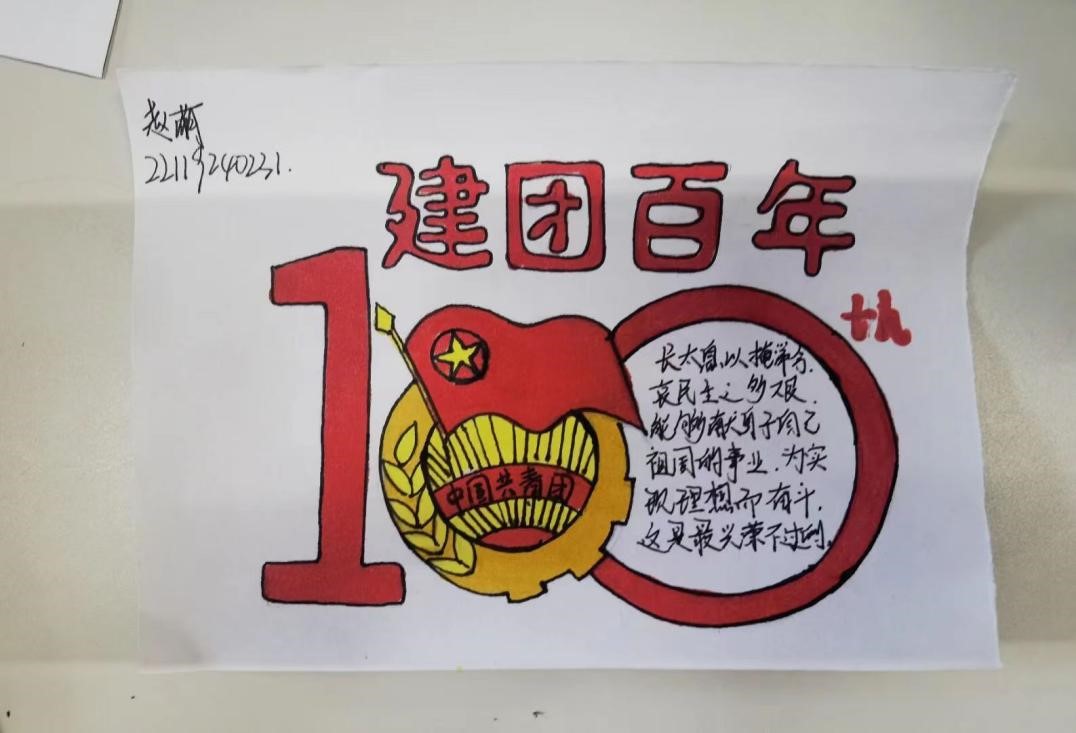 赵
建团百年
100
十九
中国共青团
长太息以掩涕兮,
哀民生之多艰.
能够献身于自己
祖国的事业.为实
现理想而奋斗,
这是最光荣不过的。